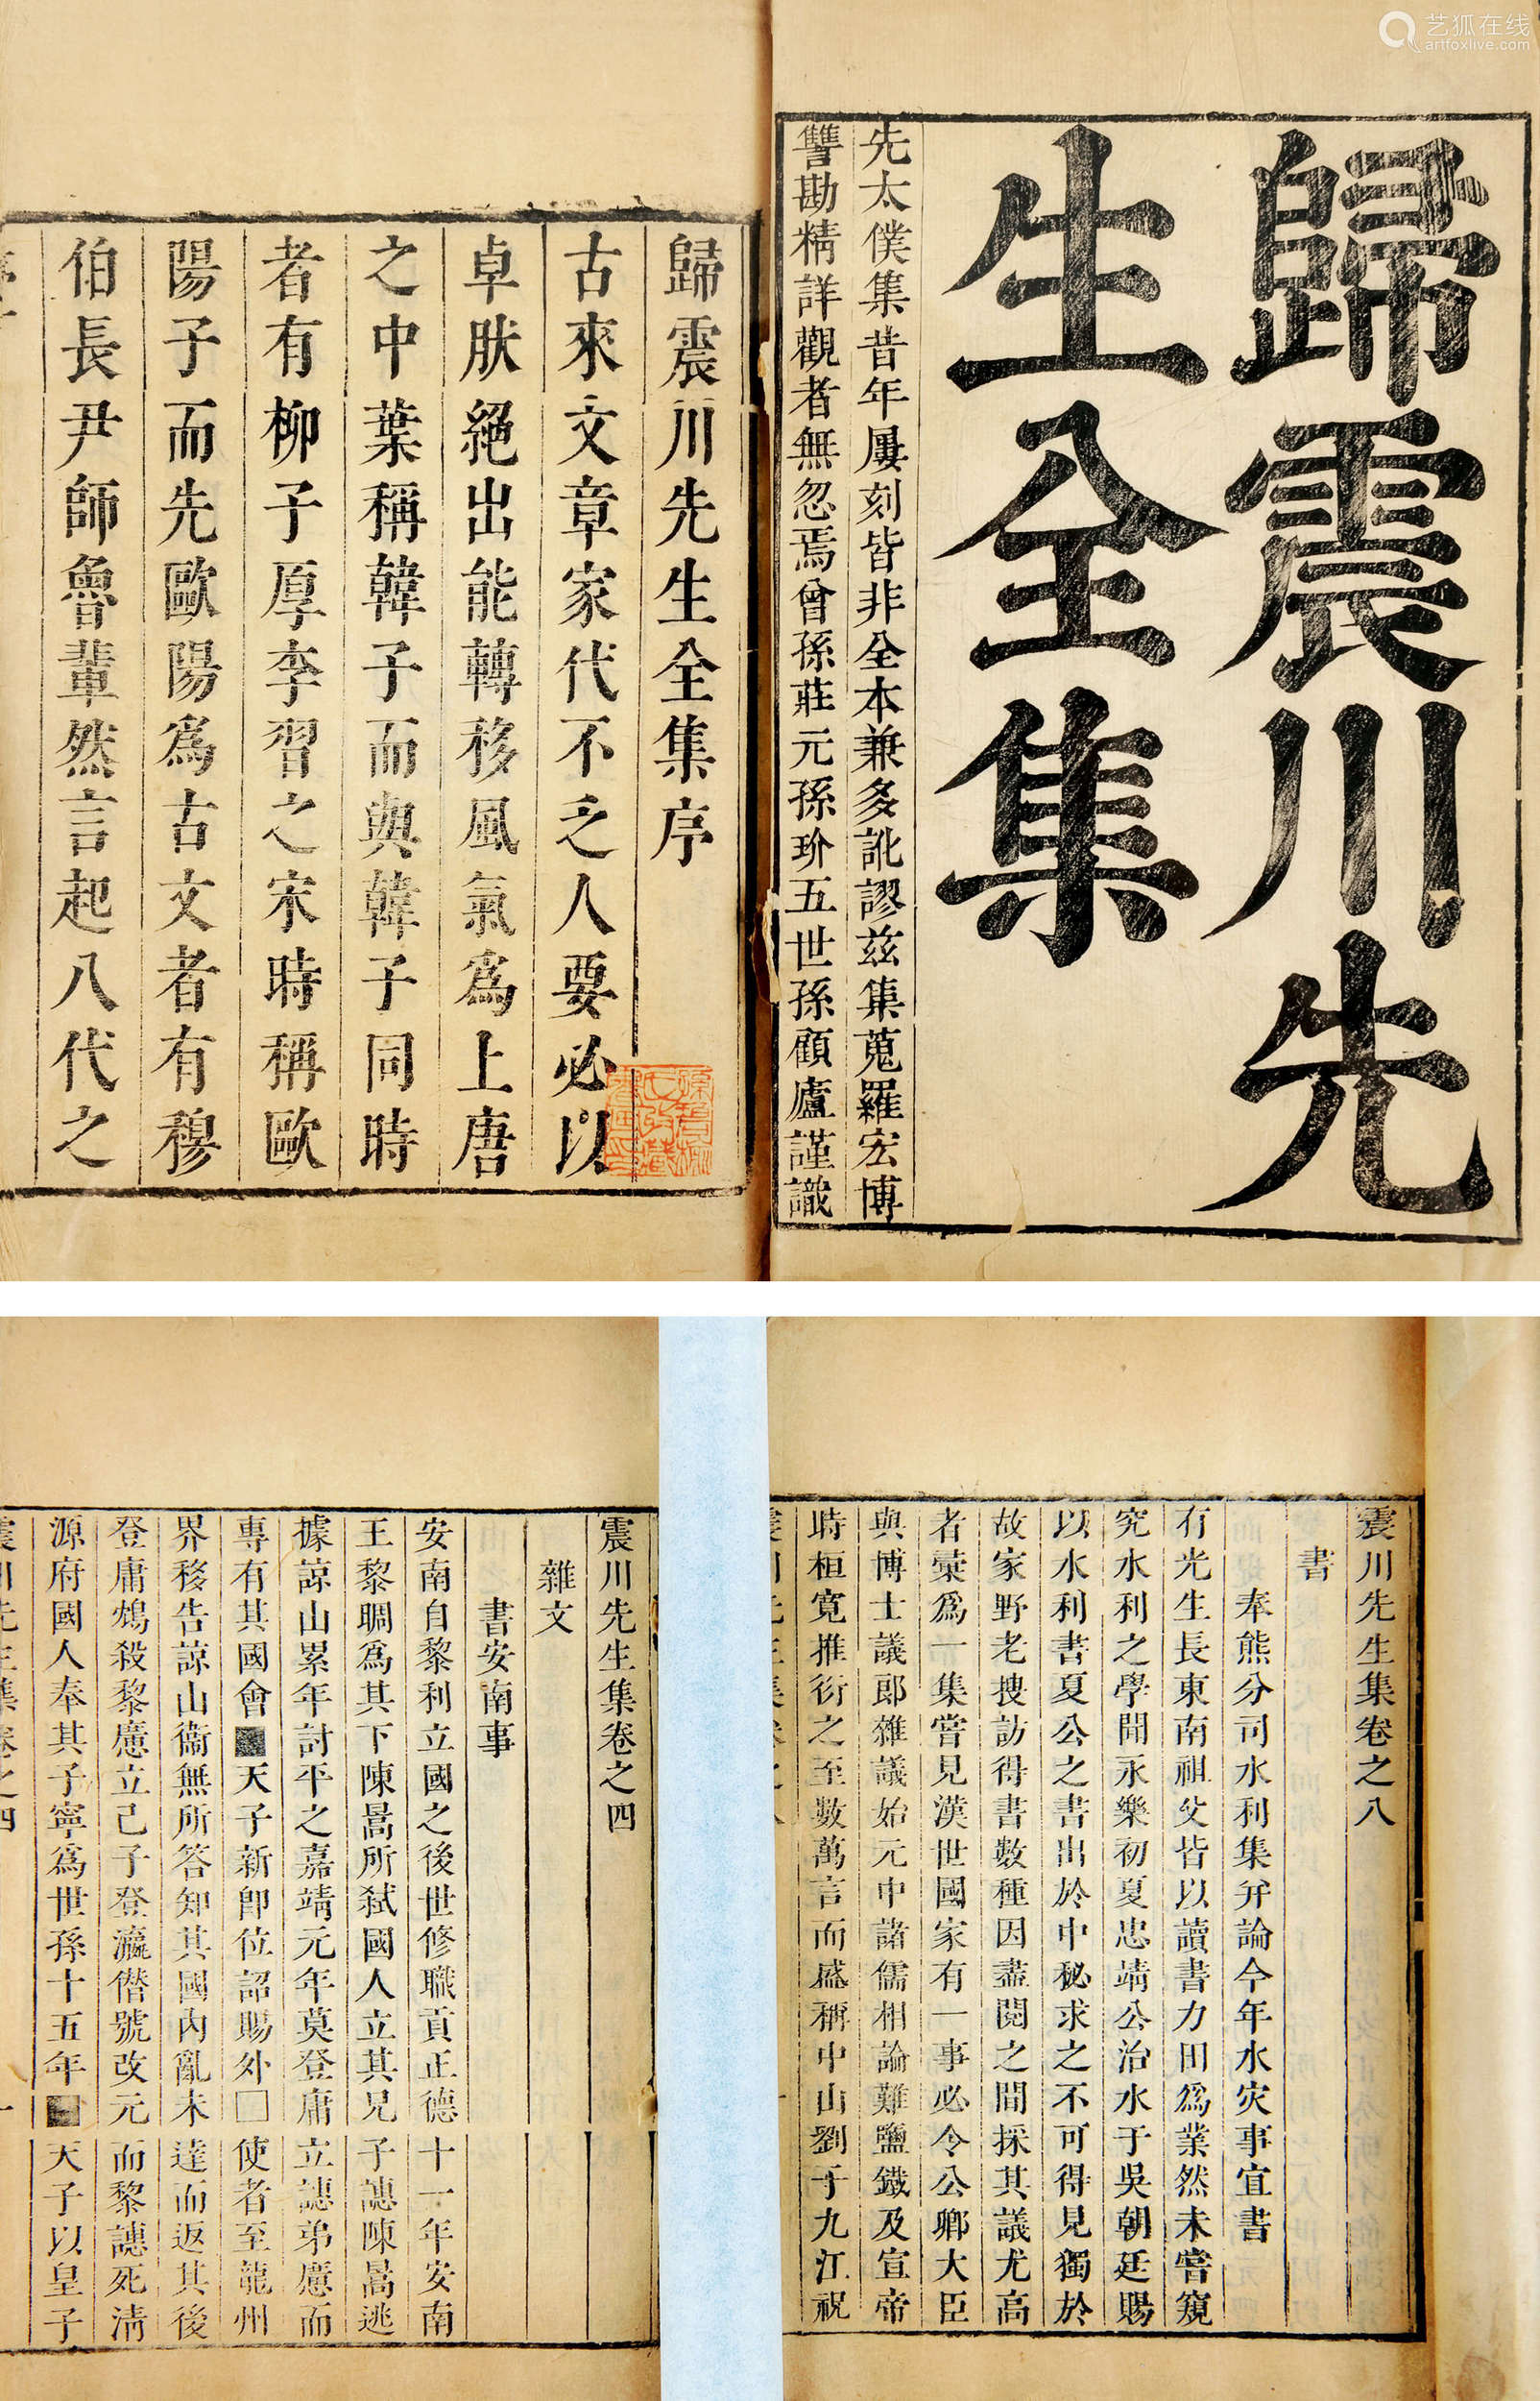 艺狐在线
artfoxlive.com
歸震川先
生全集
先太僕集昔年屢刻皆非全本兼多訛謬茲集蒐羅宏博
讐勘精詳觀者無忽焉曾孫莊元孫玠五世孫顧廬謹識
歸震川先生全集序
古來文章家代不乏人要必以
卓肰絕出能轉移風氣為上唐
之中葉稱韓子而與韓子同時
者有柳子厚李習之宋時稱歐
陽子而先歐陽為古文者有穆
伯長尹師魯輩然言起八代之
震川先生集卷之八
書
奉熊分司水利集并論今年水灾事宜書
有光生長東南祖父皆以讀書力田為業然未嘗窺
究水利之學聞永樂初夏忠靖公治水于吳朝廷賜
以水利書夏公之書出於中秘求之不可得見獨於
故家野老搜訪得書數種因盡閱之間採其議尤高
者彙為一集嘗見漢世國家有一事必令公卿大臣
與博士議郎雜議始元中諸儒相論難鹽鐵及宣帝
時桓寬推衍之至數萬言而盛稱中山劉子九江祝
震川先生集卷之四
雜文
書安南事
安南自黎利立國之後世修職貢正德十一年安南
王黎晭為其下陳暠所弒國人立其兄子譓陳暠逃
據諒山累年討平之嘉靖元年莫登庸立譓弟懬而
專有其國會天子新卽位詔賜外□使者至龍州
界移告諒山衞無所答知其國內亂未達而返其後
登庸鴆殺黎懬立己子登瀛僣號改元而黎譓死清
源府國人奉其子寧為世孫十五年天子以皇子